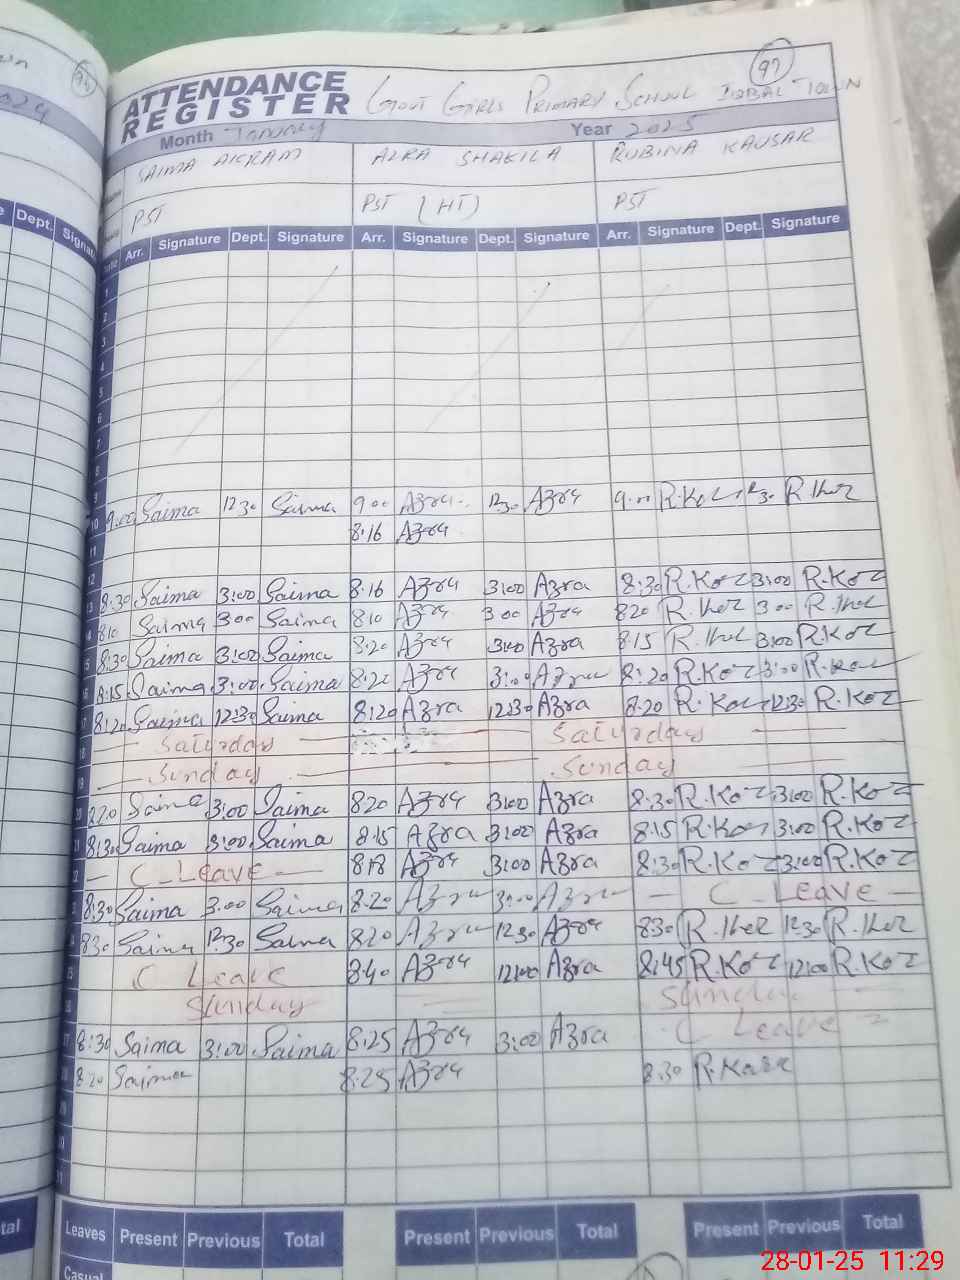 97
ATTENDANCE REGISTER GOVT GIRLS PRIMARY SCHOOL IQBAL TOWN
Month January Year 2025
SAIMA AKRAM AZRA SHAKILA RUBINA KAUSAR
PST PST (HT) PST
Arr. Signature Dept. Signature Arr. Signature Dept. Signature Arr. Signature Dept. Signature
1
2
3
4
5
6
7
8
9
10 9:00 Saima 12 30 Saima 9 00 Azra 12 30 Azra 9.00 R.Koz 12 30 R.Koz
11 8:16 Azra
12
13 8:30 Saima 3:00 Saima 8.16 Azra 3:00 Azra 8:30 R.Koz 3:00 R.Koz
14 810 Saima 3:00 Saima 810 Azra 3 00 Azra 820 R.Koz 3 00 R.Koz
15 8:30 Saima 3:00 Saima 8:20 Azra 3:00 Azra 8:15 R.Koz 3:00 R.Koz
16 8:15 Saima 3:00 Saima 8:20 Azra 3:00 Azra 8:20 R.Koz 3:00 R.Koz
17 8:20 Saima 12:30 Saima 8:20 Azra 12:30 Azra 8.20 R.Koz 12:30 R.Koz
18 Saturday Saturday
19 Sunday Sunday
20 Saima 3:00 Saima 8:20 Azra 3:00 Azra 8:30 R.Koz 3:00 R.Koz
21 8:30 Saima 3:00 Saima 8.15 Azra 3:00 Azra 8:15 R.Koz 3:00 R.Koz
22 C_Leave 8:18 Azra 3:00 Azra 8:30 R.Koz 3:00 R.Koz
23 8:30 Saima 3:00 Saima 8:20 Azra 3:00 Azra C Leave
24 830 Saima 12:30 Saima 8:20 Azra 12 30 Azra 830 R.Koz 12 30 R.Koz
25 C Leave 8:40 Azra 12:00 Azra 8:45 R.Koz 12:00 R.Koz
26 Sunday Sunday
27 8:30 Saima 3:00 Saima 8:25 Azra 3:00 Azra C Leave
28 8:20 Saima 8:25 Azra 8.30 R.Koz
29
30
31
Leaves Present Previous Total Present Previous Total Present Previous Total
Casual
28-01-25 11:29